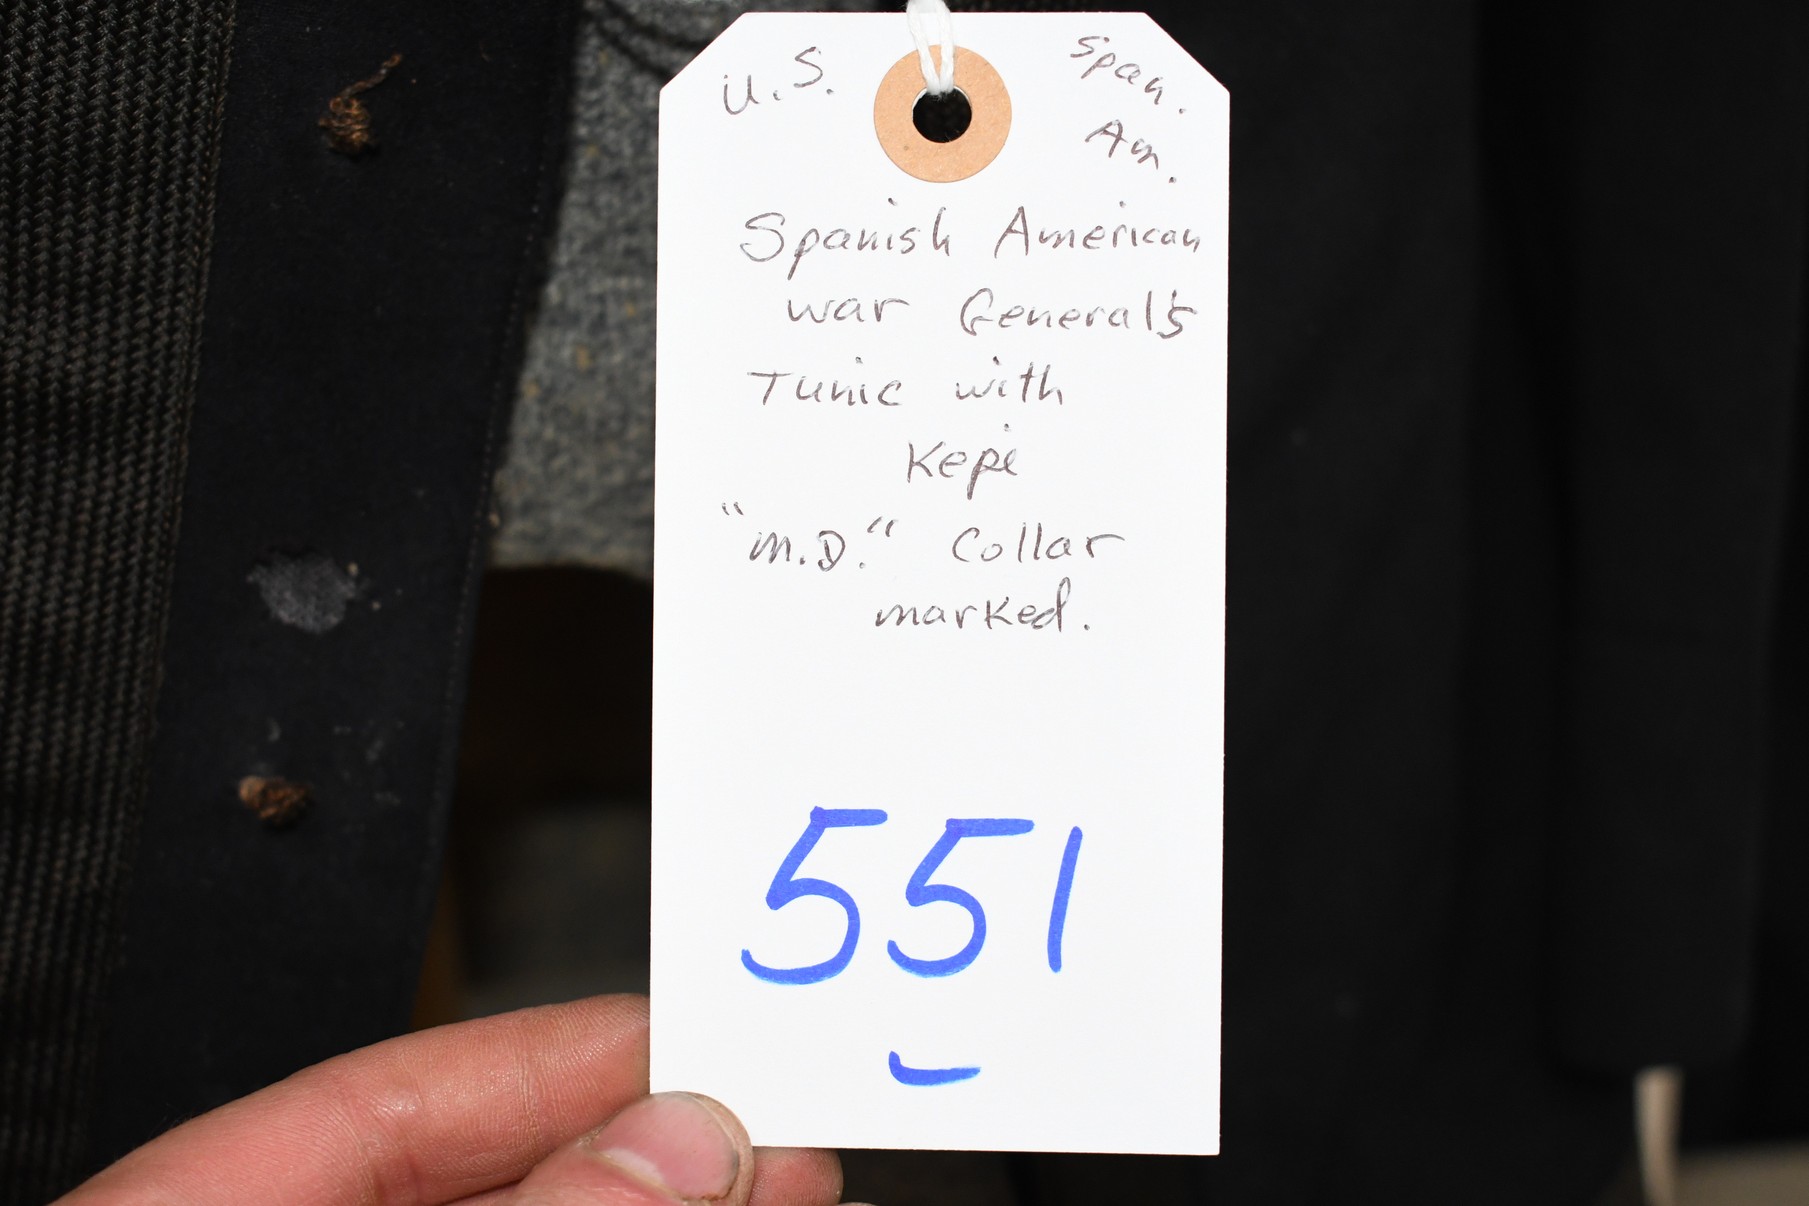 U.S.
Span.
Am.
Spanish American
war General's
Tunic with
Kepi
"M.D." Collar
marked.
551